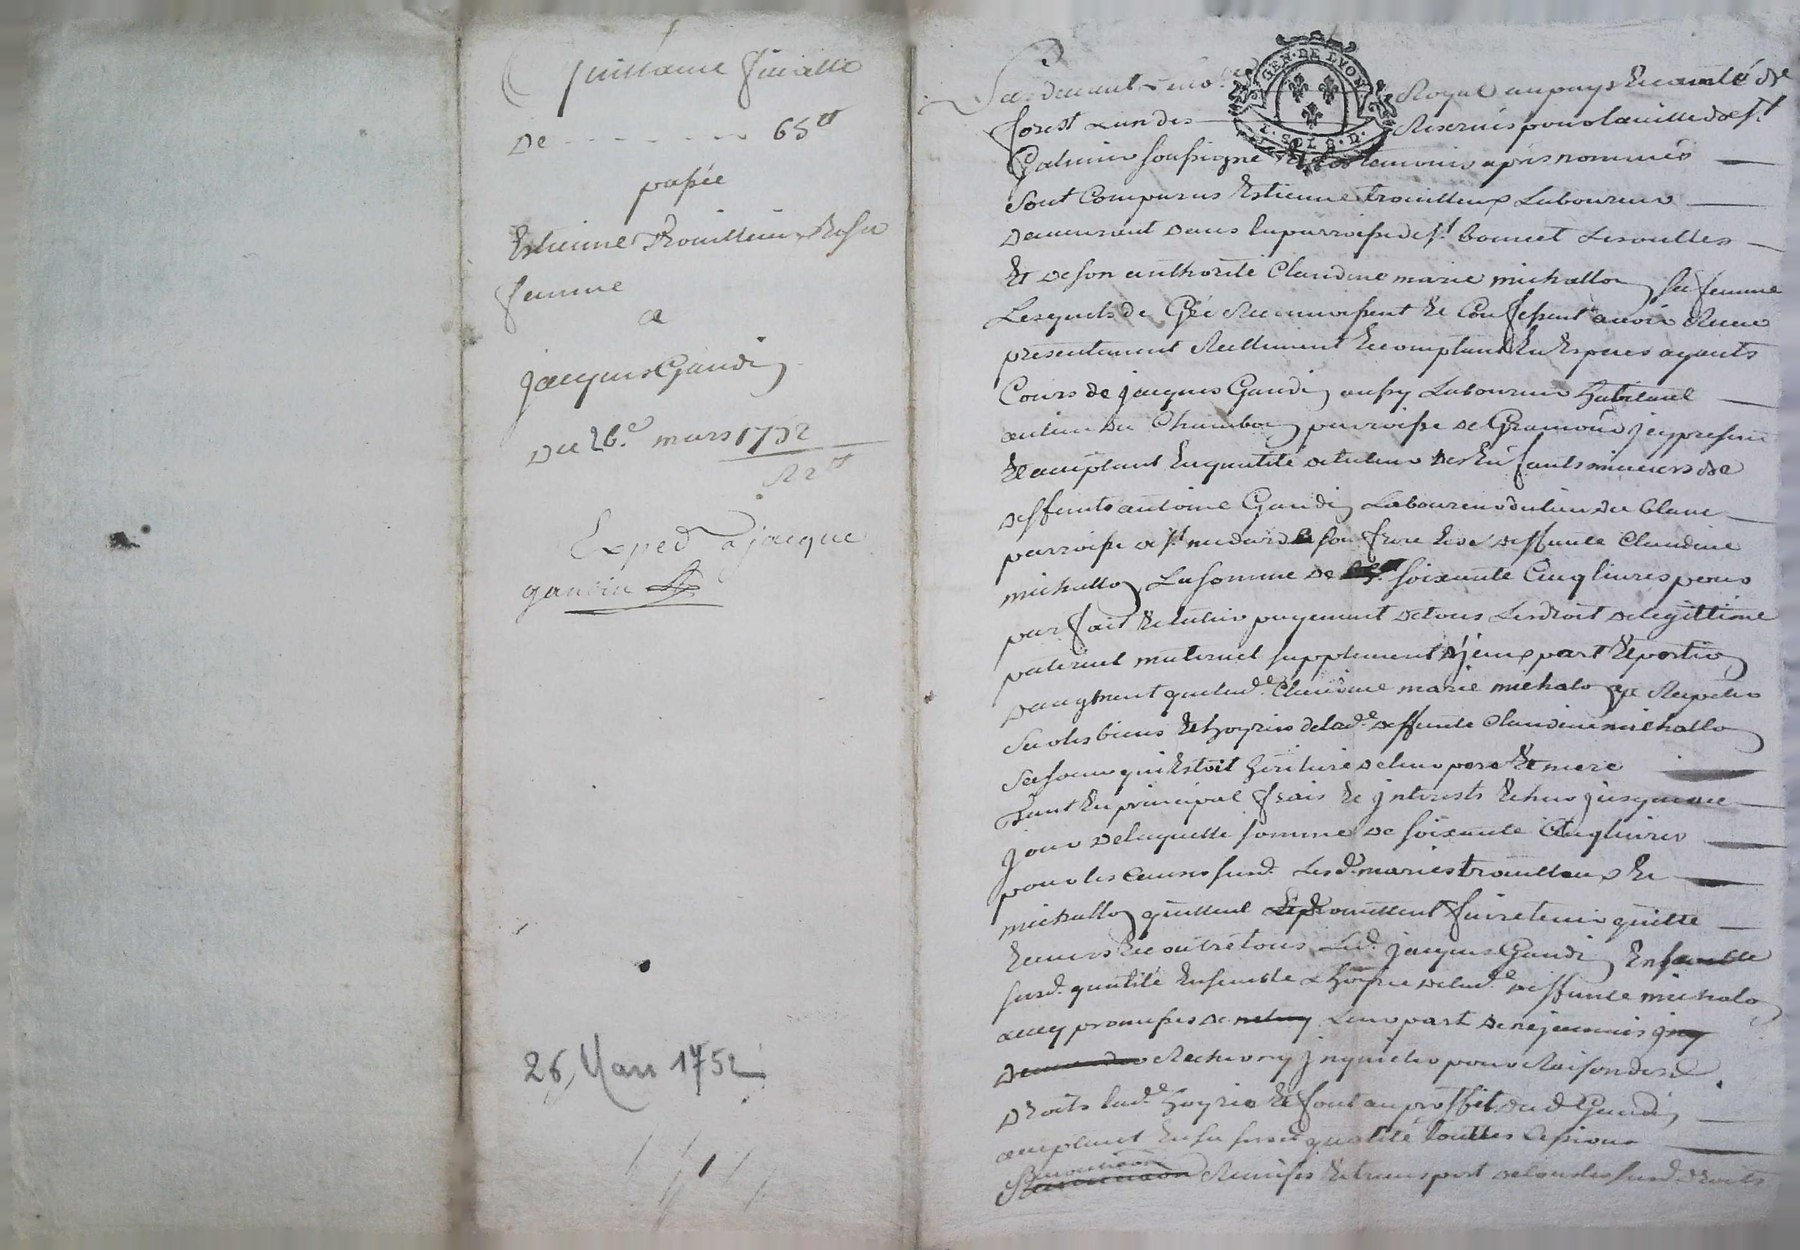 Quittance finalle
De - - - - - - 65tt
passée
Estienne Trouilleux & sa
femme
a
jacques Gaudin
Du 26.e mars 1752
Exped a jacque
gaudin
26 Mars 1752
GEN. DE LYON
Pardevant Le no.re Royal au pays & comté de
forest L'un des Reservés pour la ville de st
Galmier soussigné & les temoins après nommés
sont Comparus Estienne trouilleux Laboureur
demeurant dans la parroisse de st bonnet Les oulles
Et de son authorité Claudine marie michallon sa femme
Lesquels de Gré Reconnoissent et Confessent avoir Receu
presentement Réellement & comptant En Especes ayants
Cours de jacques Gaudin aussy Laboureur habitant
au lieu du Chambon parroisse de Gramond jcy present
& acceptant En qualité de tuteur des Enfants mineurs de
deffunts antoine Gaudin Laboureur du lieu du blanc
parroisse de st medard son frere & de deffunte Claudine
michallon La somme de soixante Cinq livres pour
parfait & entier payement de tous Les droit de legittime
paternel maternel supplement d'jceux part & portion
d'augment que lad.e Claudine marie michalon a Repeter
sur les biens & hoyries de lad.e deffunte Claudine michallon
sa soeur qui Estoit heritiere de leur pere & mere
Tant En principal frais & jnterests Echus jusqu'a ce
jour de laquelle somme de soixante Cinq livres
pour les Causes susd. Lesd. mariés trouilleux &
michallon quittent & promettent faire tenir quitte
Envers & contre tous Led. jacques Gaudin En sa
susd. qualité Ensemble L'hoyrie de lad.e deffunte michalon
avec promesses de Leur part de ne jamais
Rechercher ny jnquieter pour Raison des
droits lad.e hoyrie & font au proffit dud. Gaudin
acceptant En sa susd. qualité touttes Cessions
Remises & transport de tous les susd. droits